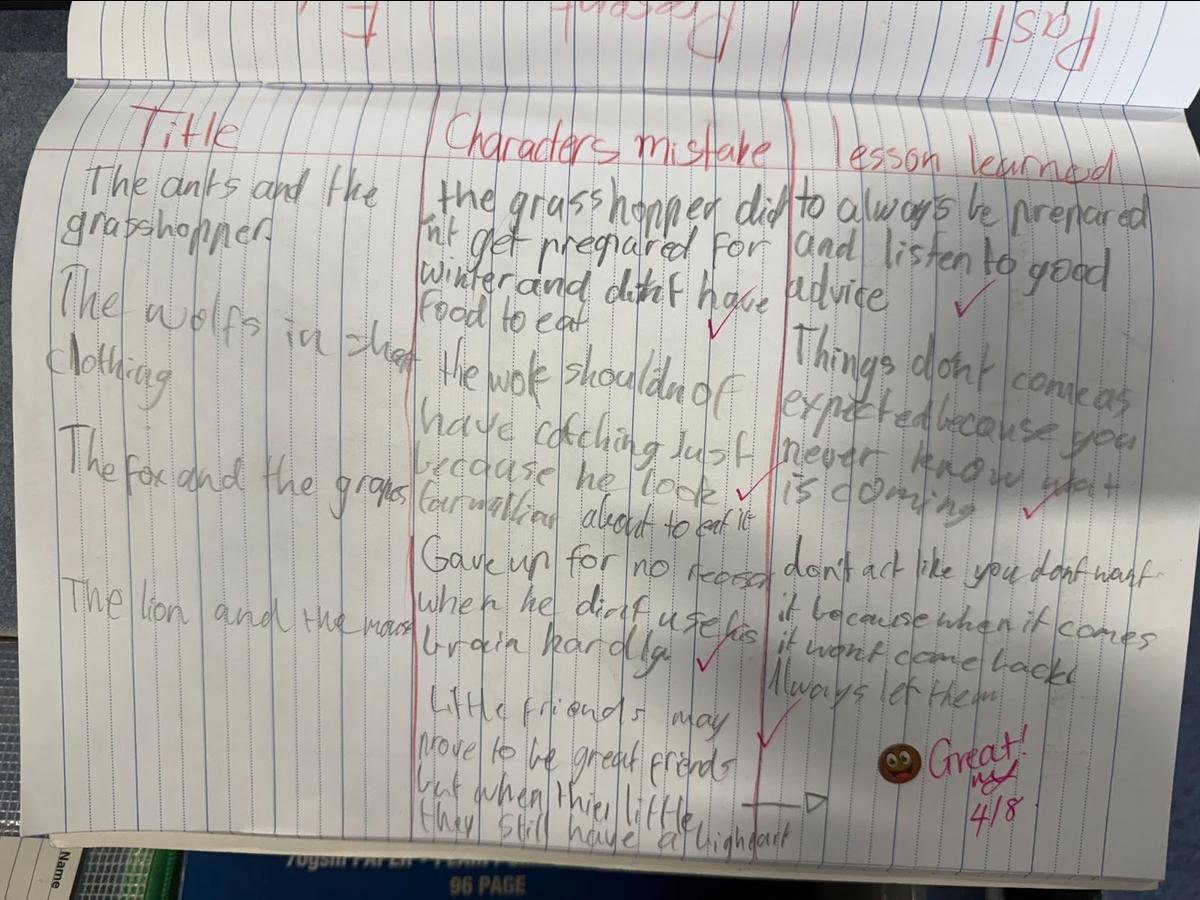 Past
Present
F
Title
Characters mistake
lesson learned
The ants and the
grasshopper.
the grasshopper did
nt get prepared for
winter and didnt have
food to eat
to always be prepared
and listen to good
advice
The wolfs in sheep
clothing
the wolf shouldn of
have catching Just
because he look
farmalliar about to eat it
Things dont come as
expected because you
never know what
is coming
The fox and the grapes
Gave up for no reason
when he didnt use his
brain hardly
don't act like you dont want
it because when it comes
it wont come back
The lion and the mouse
Little friends may
prove to be great friends
but when thier little
they still have a
Always let them
Great!
4/8
Name
70gsm PAPER
96 PAGE